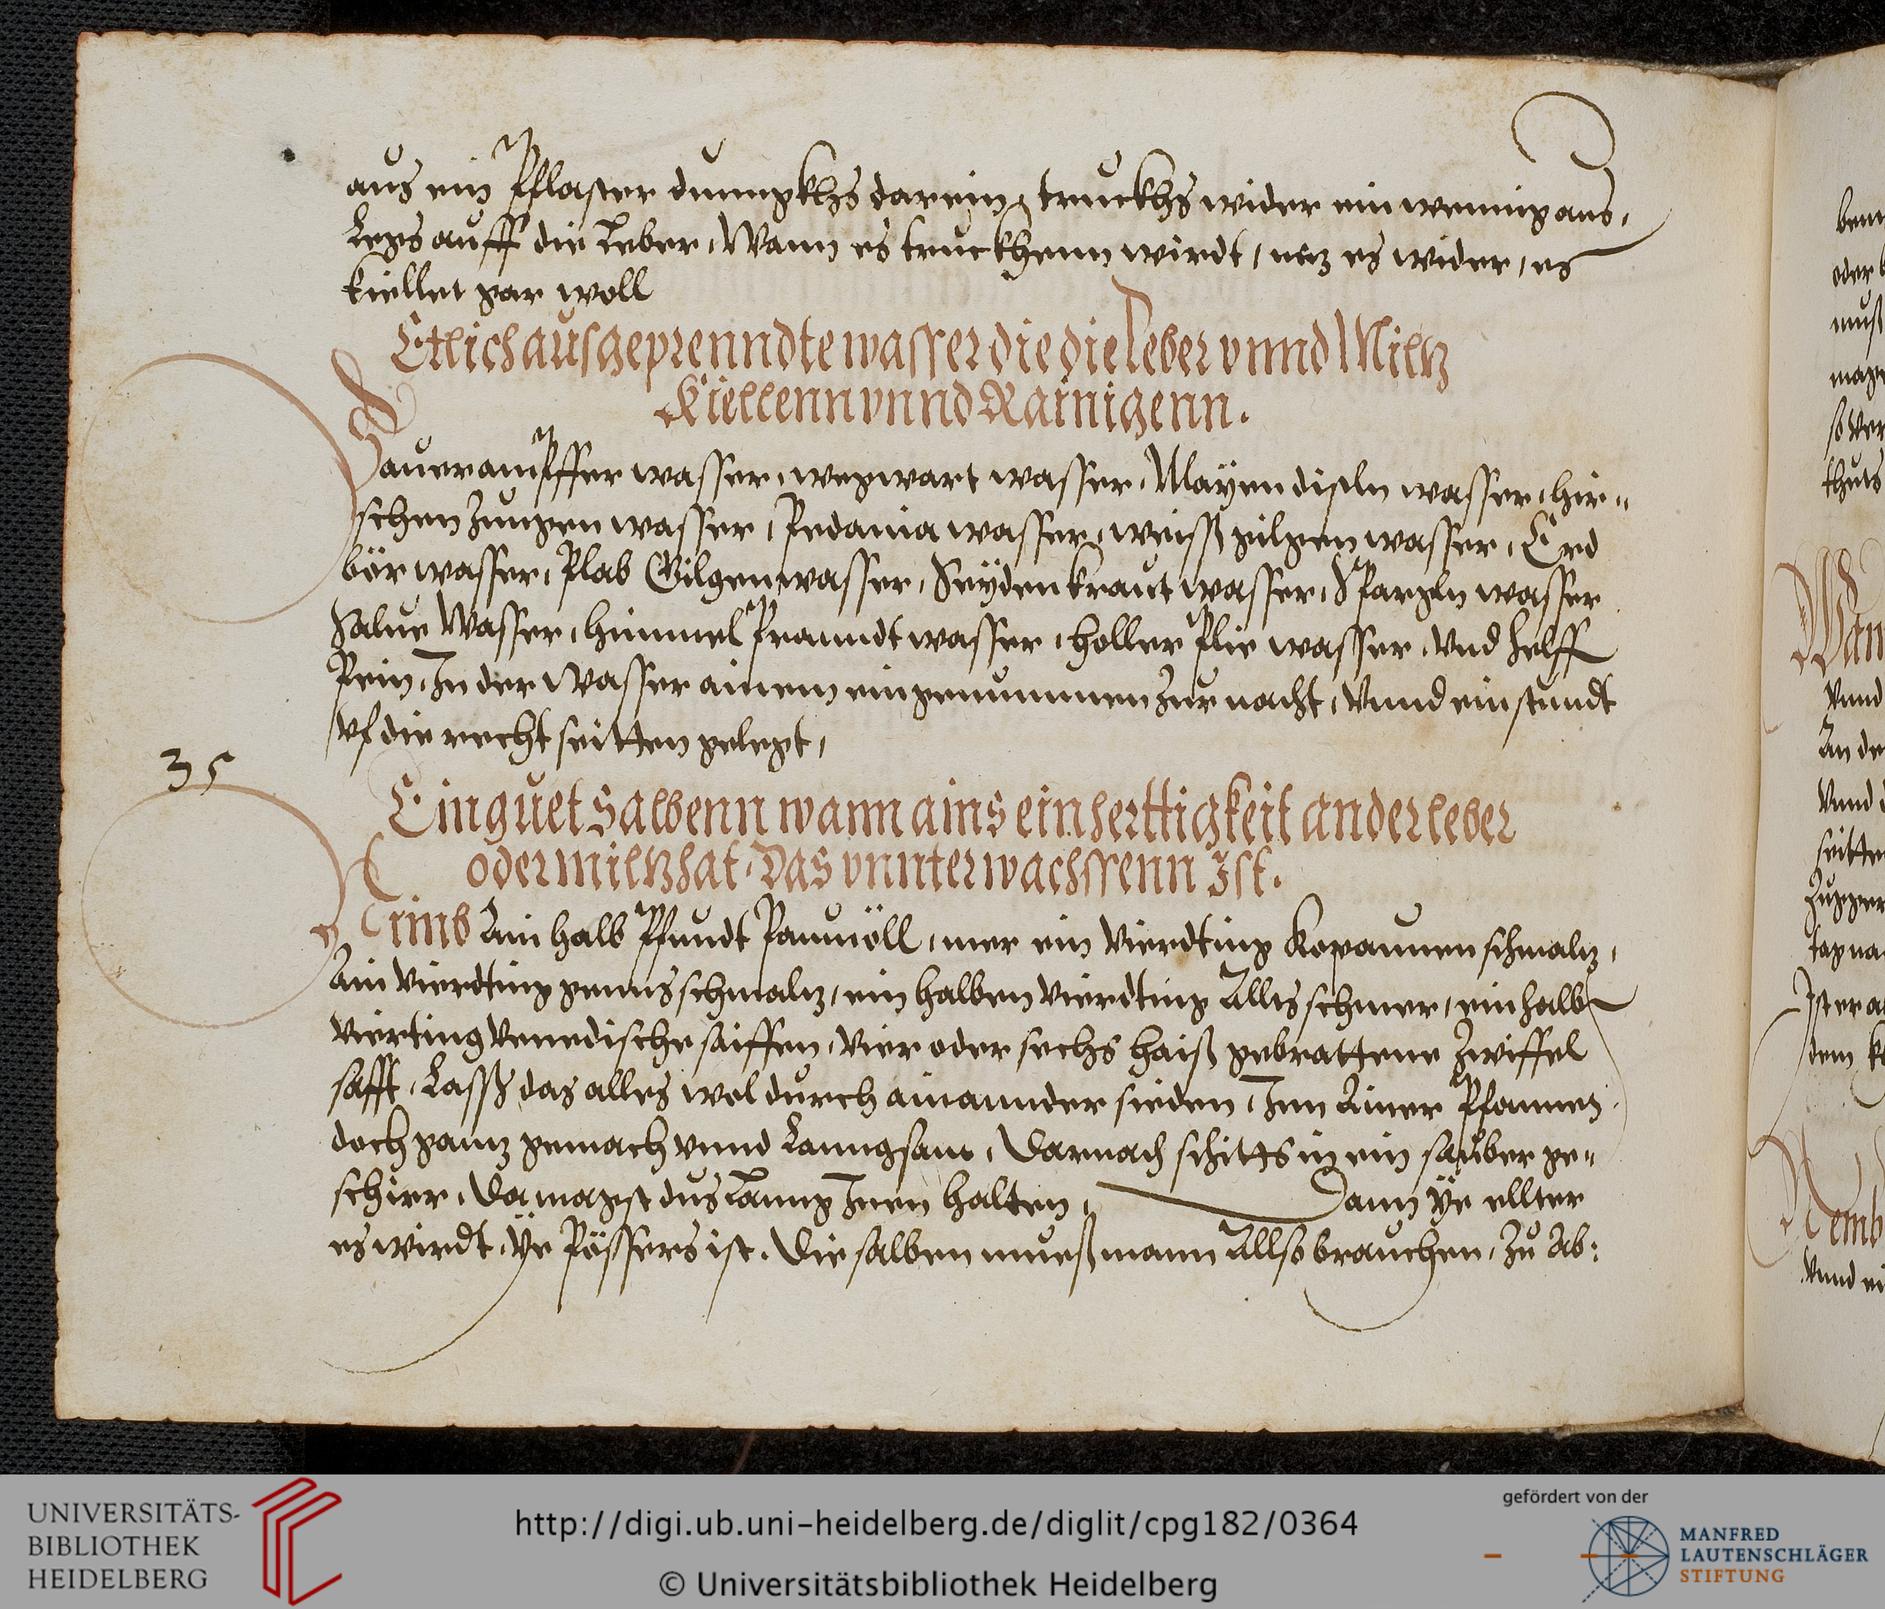 aus ein Pflaster dunngkhs darein, truckhs wider ein wennig aus,
Legs auff die Leber, Wann es truckhenn wirdt, nez es wider, es
kiellet gar woll
Etlich ausgeprenndte wasser die die Leber vnnd Miltz
Kiellenn vnnd Rainigenn.
SaueramPffer wasser, wegwart wasser, Mayen distln wasser, hir„
schen Zungen wasser, Pedania wasser, weiss gilgen wasser, Erd
bör wasser, Plab Gilgen wasser, Seyden kraut wasser, SPargln wasser
Salue Wasser, himmel Pranndt wasser, holler Plie wasser, Vnd helff
Pein, In der Wasser ainem eingenummen Zur nacht, Vnnd ein stundt
Vf die recht seitten gelegt,
35
Ein guet Salbenn wann ains ein herttigkeit an der leber
oder miltz hat, Das vnnter wachssenn Ist.
Nimb Ain halb Pfundt Paumöll, mer ein Vierdting Kopaunen schmalz,
Ain Vierdting genns schmalz, ein halben Vierdting Allts schmer, ein halbn
Vierting Venedische saiffen, Vier oder sechs haiß gebrattene Zwiffel
safft, Lassß das alles wol durch ainannder sieden, Inn Ainer Pfannen,
doch gannz gemach vnnd Lanngsam, Darnach schitts in ein sauber ge„
schirr, Da magst dus Lanng Inen halten, Dann ye ellter
es wirdt, ye Pössers ist. Die salben mueß mann Allso brauchen, Zu Ab:
ben
oder
muß
mag
so ver
thuts
Wan
Vnnd
An de
Vnnd
seitten
Zugger
tag na
Ist er a
dem k
Nemb
Vnnd ei
UNIVERSITÄTS-
BIBLIOTHEK
HEIDELBERG
http://digi.ub.uni-heidelberg.de/diglit/cpg182/0364
© Universitätsbibliothek Heidelberg
gefördert von der
MANFRED
LAUTENSCHLÄGER
STIFTUNG